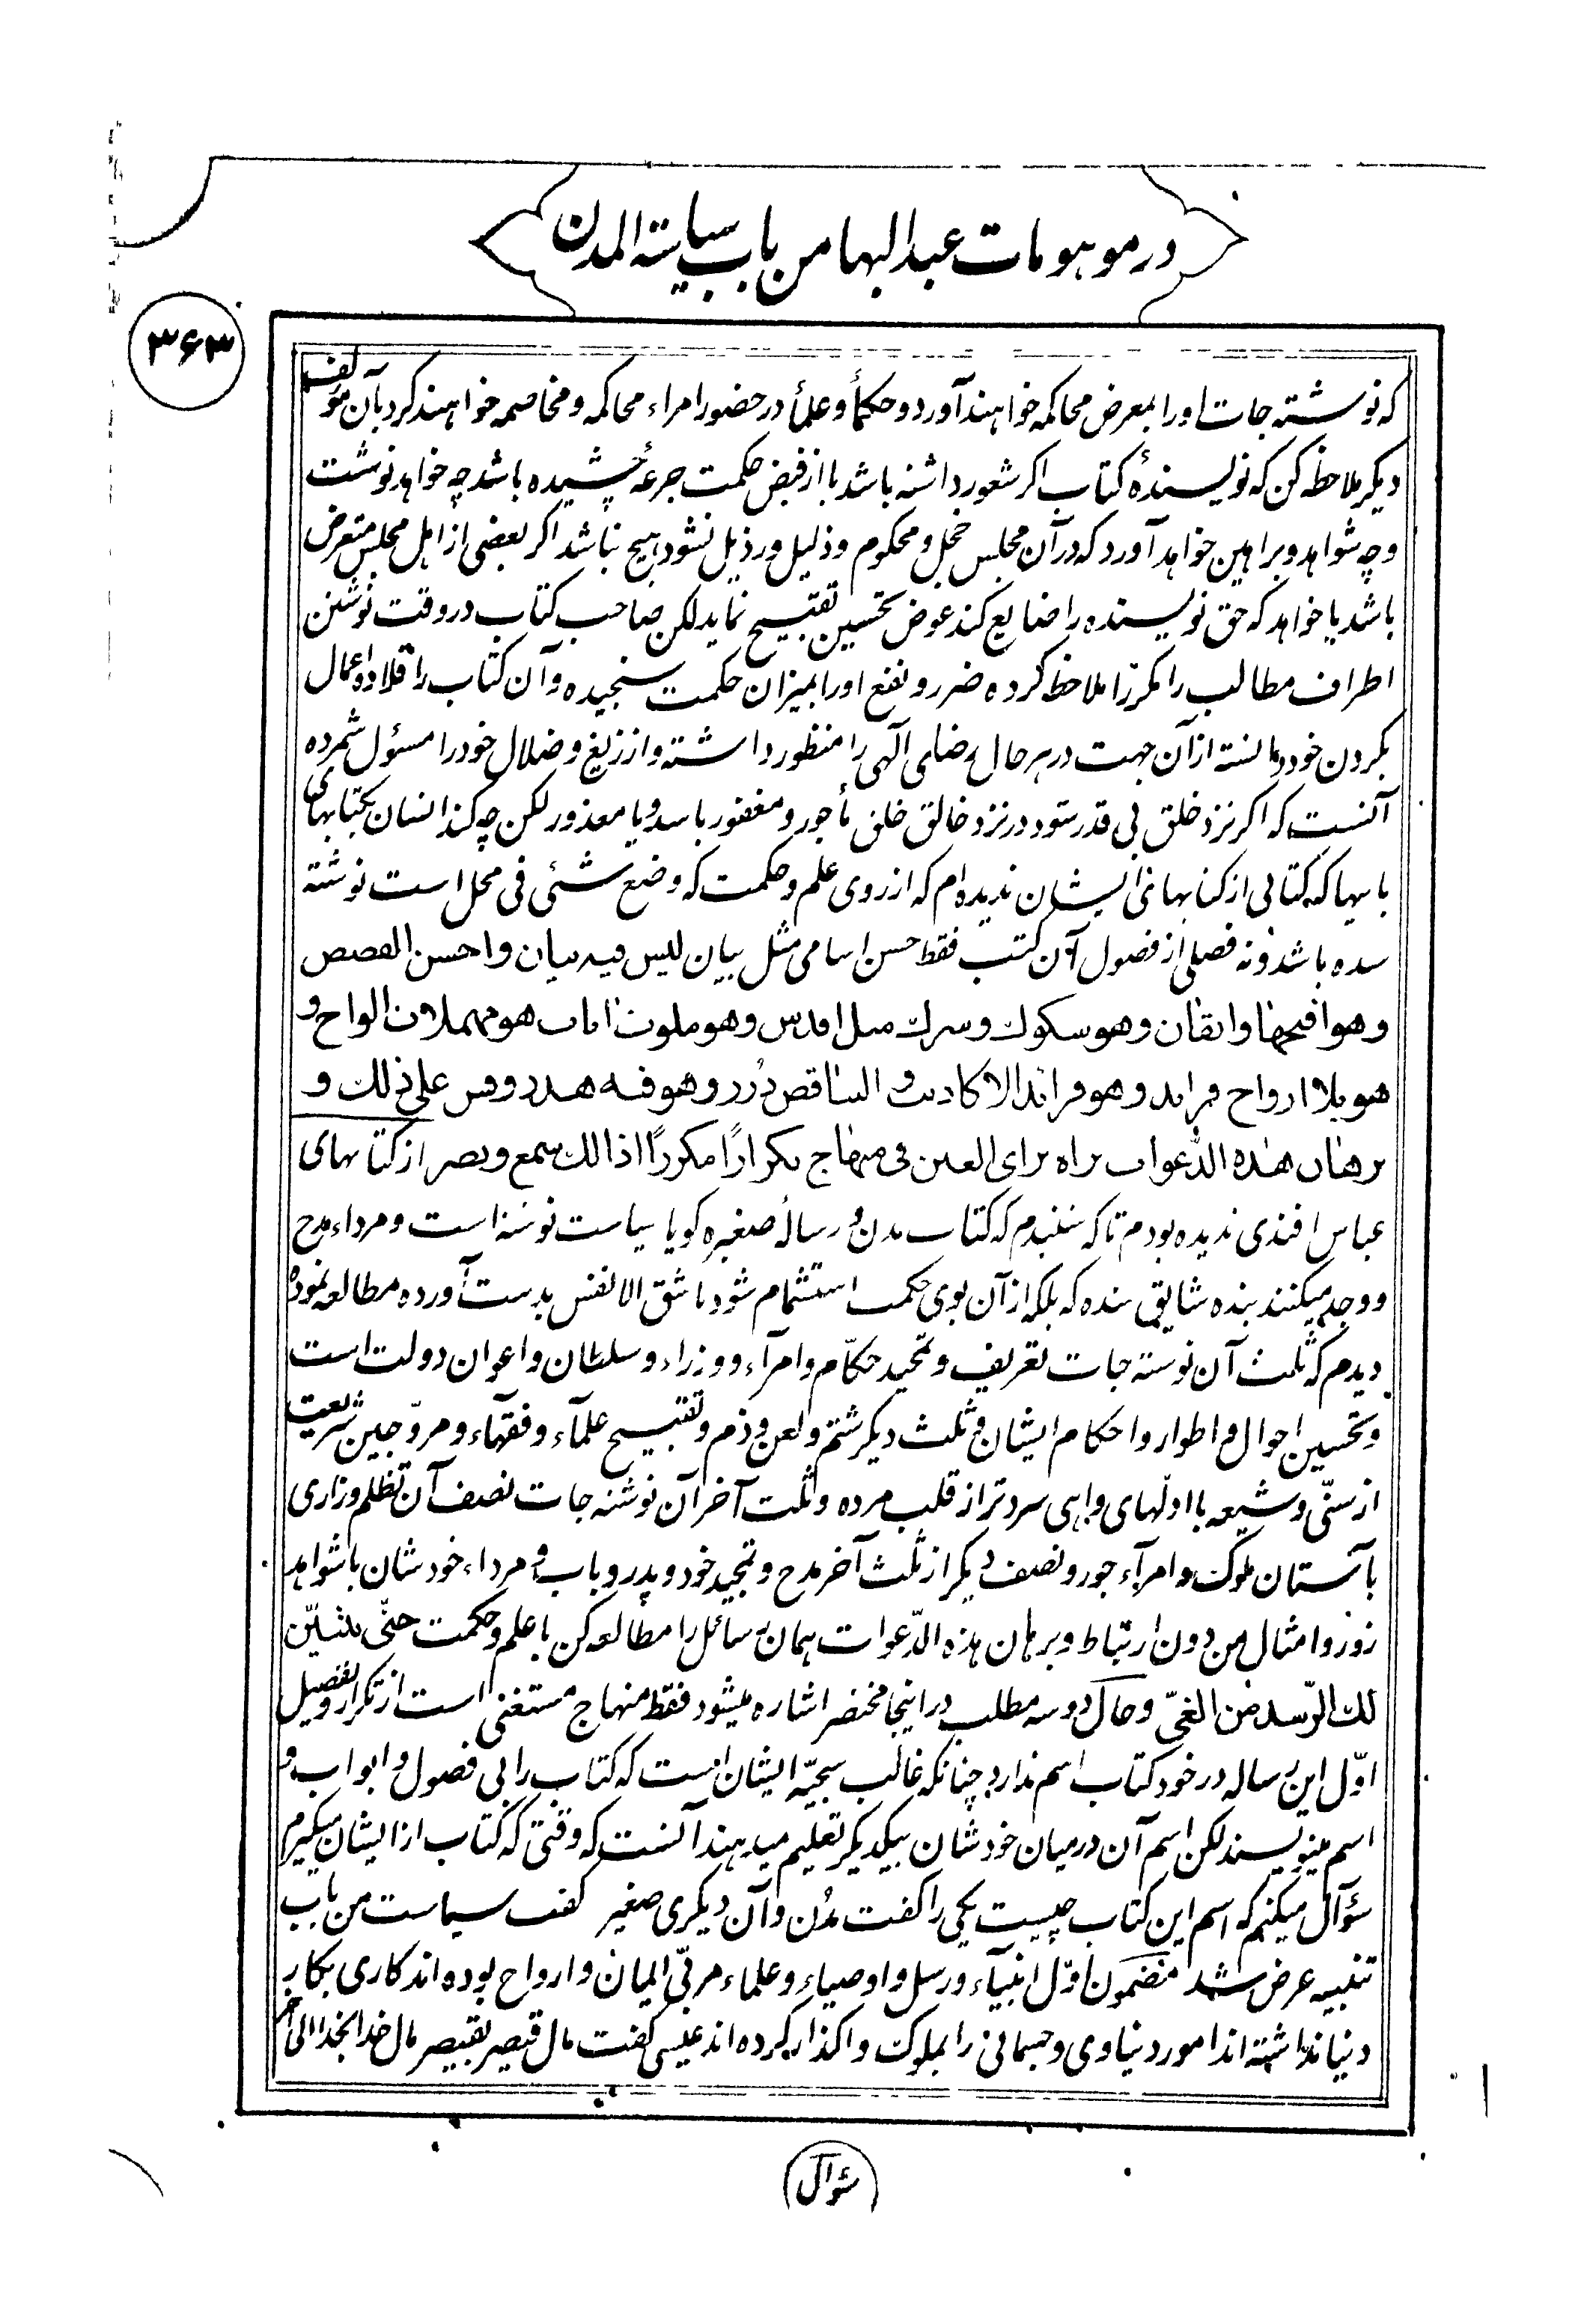 در موهومات عبدالبها من باب سیاسة المدن
۳۶۳
که نوشته جات او را بمعرض محاکمه خواهند آورد و حکمأ و علمأ در حضور امراء محاکمه و مخاصمه خواهند کرد بآن مؤلف
دیکر ملاحظه کن که نویسندهٔ کتاب اکر شعور داشته باشد یا از فیض حکمت جرعهٔ چشیده باشد چه خواهد نوشت
و چه شواهد و براهین خواهد آورد که در آن مجلس خجل و محکوم و ذلیل و رذیل نشود هیچ نباشد اکر بعضی از اهل مجلس متعرض
باشد یا خواهد که حق نویسنده را ضایع کند عوض تحسین تقبیح نماید لکن صاحب کتاب در وقت نوشتن
اطراف مطالب را مکررّا ملاحظه کرده ضرر و نفع او را بمیزان حکمت سنجیده و آن کتاب را قلاده اعمال
بکردن خود دانسته از آن جهت در هر حال رضای آلهی را منظور داشته و از زیغ و ضلال خود را مسؤل شمرده
آنست که اکر نزد خلق بی قدر شود در نزد خالق خلق مأجور و مغفور باشد و یا معذور لکن چه کند انسان بکتابهای
بابیها که کتابی از کتابهای ایشان ندیده ام که از روی علم و حکمت که وضع شئی فی محل است نوشته
شده باشد و نه فصلی از فصول آن کتب فقط حسن اسامی مثل بیان لیس فیه بیان و احسن القصص
و هو اقبحها و ایقان و هو سکوک و شرک مثل اقدس و هو ملوث الواح و
هو بلا ارواح فراید و هو فراید الاکاذیب و التناقض دُرر و هو فیه هدر و قس علی ذلک و
برهان هذه الدّعوات براه برای العین فی منهاج تکرارًا مکررًا اذا لک سمع و بصر از کتابهای
عباس افندی ندیده بودم تا که شنیدم که کتاب مدن و رسالهٔ صغیره کویا سیاست نوشته است و مرداء مدح
و وجد میکنند بنده شایق شده که بلکه از آن بوی حکمت استشمام شود باشق الانفس بدست آورده مطالعه نموده
دیدم که ثلث آن نوشته جات تعریف و تمجید حکّام و امرآء و وزراء و سلطان و اعوان دولت است
و تحسین احوال و اطوار و احکام ایشان و ثلث دیکر شتم و لعن و ذم و تقبیح علمآء و فقهاء و مروّجین شریعت
از سنّی و شیعه با ادلّهای واهی سردتر از قلب مرده و ثلث آخر آن نوشته جات نصف آن تظلم و زاری
بآستان ملوک و امرآء جور و نصف دیکر از ثلث آخر مدح و تمجید خود و پدر و باب و مرداء خودشان با شواهد
زور و امثال من دون ارتباط و برهان هذه الدّعوات همان رسائل را مطالعه کن با علم و حکمت حتّی یتبیّن
لک الرّشد من الغیّ و حال دو سه مطلب در اینجا مختصر اشاره میشود فقط منهاج مستغنی است از تکرار و تفصیل
اوّل این رساله در خود کتاب اسم ندارد چنانکه غالب سجیّه ایشان است که کتاب را بی فصول و ابواب و
اسم مینویسند لکن اسم آن در میان خودشان بیکدیکر تعلیم میدهند آنست که وقتی که کتاب از ایشان میکیرم
سؤآل میکنم که اسم این کتاب چیست یکی را کفت مدُن و آن دیکری صغیر کفت سیاست من باب
تنبیه عرض شد متضمون اوّل انبیآء و رسل و اوصیاء و علماء مربّی ایمان و ارواح بوده اند کاری بکار
دنیا نداشته اند امور دنیاوی و جسمانی را بملوک واکذار کرده اند عیسی کفت مال قیصر بقیصر مال خدا بخدا الی آخر
سؤال